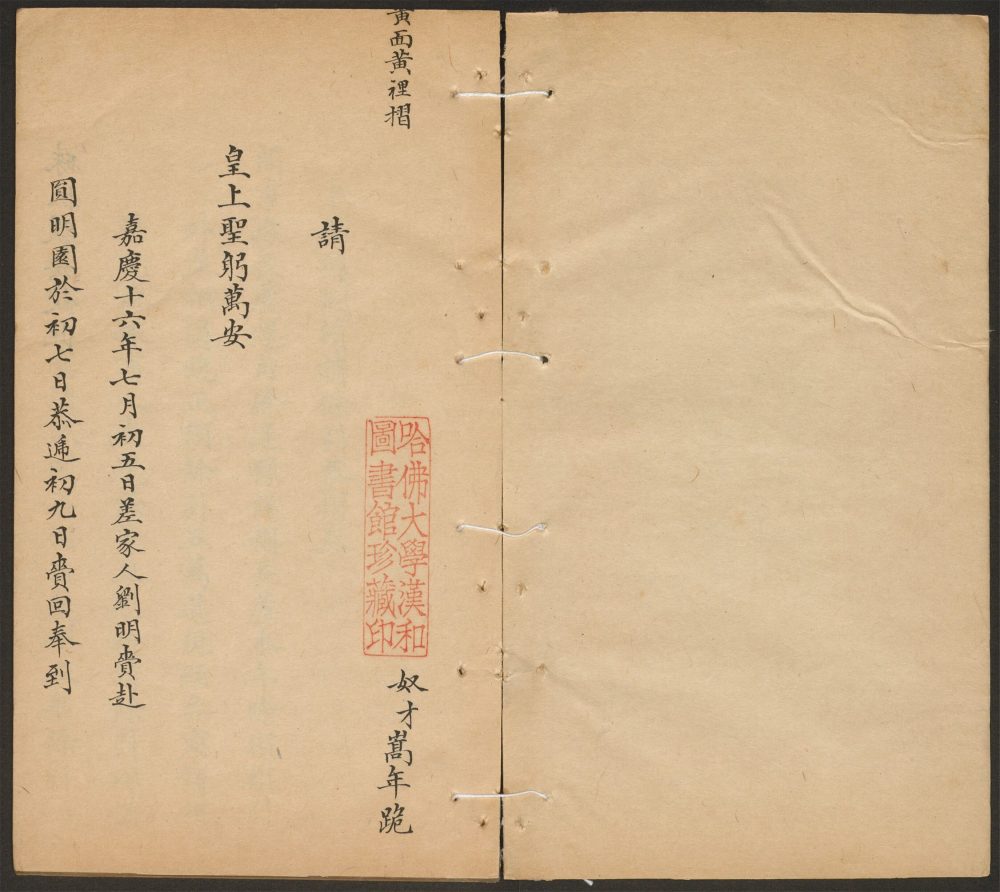 黃面黃裡摺
奴才嵩年跪
請
皇上聖躬萬安
嘉慶十六年七月初五日差家人劉明賫赴
圓明園於初七日恭遞初九日賫回奉到
哈佛大學漢和
圖書館珍藏印